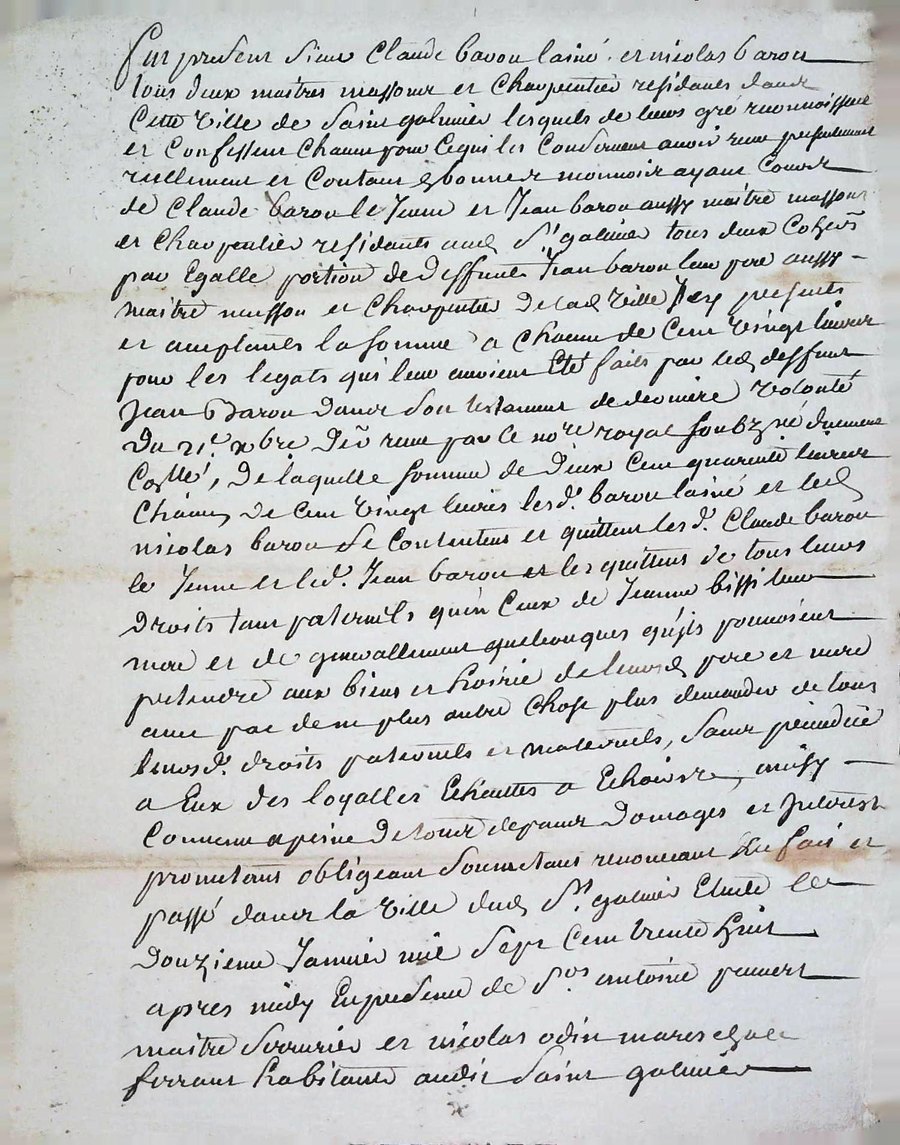 Fut present Sieur Claude baron lainé et nicolas baron
tous deux maitres massons et Charpentier residants dans
Cette Ville de Saint galmier lesquels de leurs gré reconnoissent
et Confessent Chacun pour Cequi les Concernent avoir reçu presentement
reellement et Contant bonnes monnoie ayant Cours
de Claude baron le Jeune et Jean baron aussy maitre masson
et Charpentier residants aud St galmier tous deux
par Egalle portion de deffunt Jean baron leur pere aussy
maitre masson et Charpentier de lad Ville Jcy presents
et aceptants la somme a chacun de Cent Vingt livres
pour les legats qui leur avoient Eté faits par led deffunt
Jean Baron dans Son testament de derniere Volonté
du 21e xbre Dernr recu par le nore royal Soubzné
De laquelle somme de Deux Cent quarente livres
chacun de Cent Vingt livres lesd. baron lainé et led
nicolas baron Se Contentent et quittent lesd. Claude baron
le Jeune et led. Jean baron et les quittent de tous leurs
Droits tant paternels qu'en Ceux de Jeanne bissi leur
mere et de generallement quelconques qu'jls pouvoient
pretendre aux biens et hoirie de leursd pere et mere
avec pac de ne plus autre Chose plus demander de tous
leursd. droits paternels et maternels, Sans préjudice
a Eux des loyalles Echeuttes a Echoir, ainsy
Convenu a peine de tous depans Domages et Jnterest
prometans obligeant Soumetans renonceant &c fait et
passé dans la Ville dud St galmier Etude le
Douzieme Janvier mil Sept Cent trente huit
apres midy En presence de Srs antoine
maitre Serrurier et nicolas odin mareschal
ferrant habitants audit Saint galmier